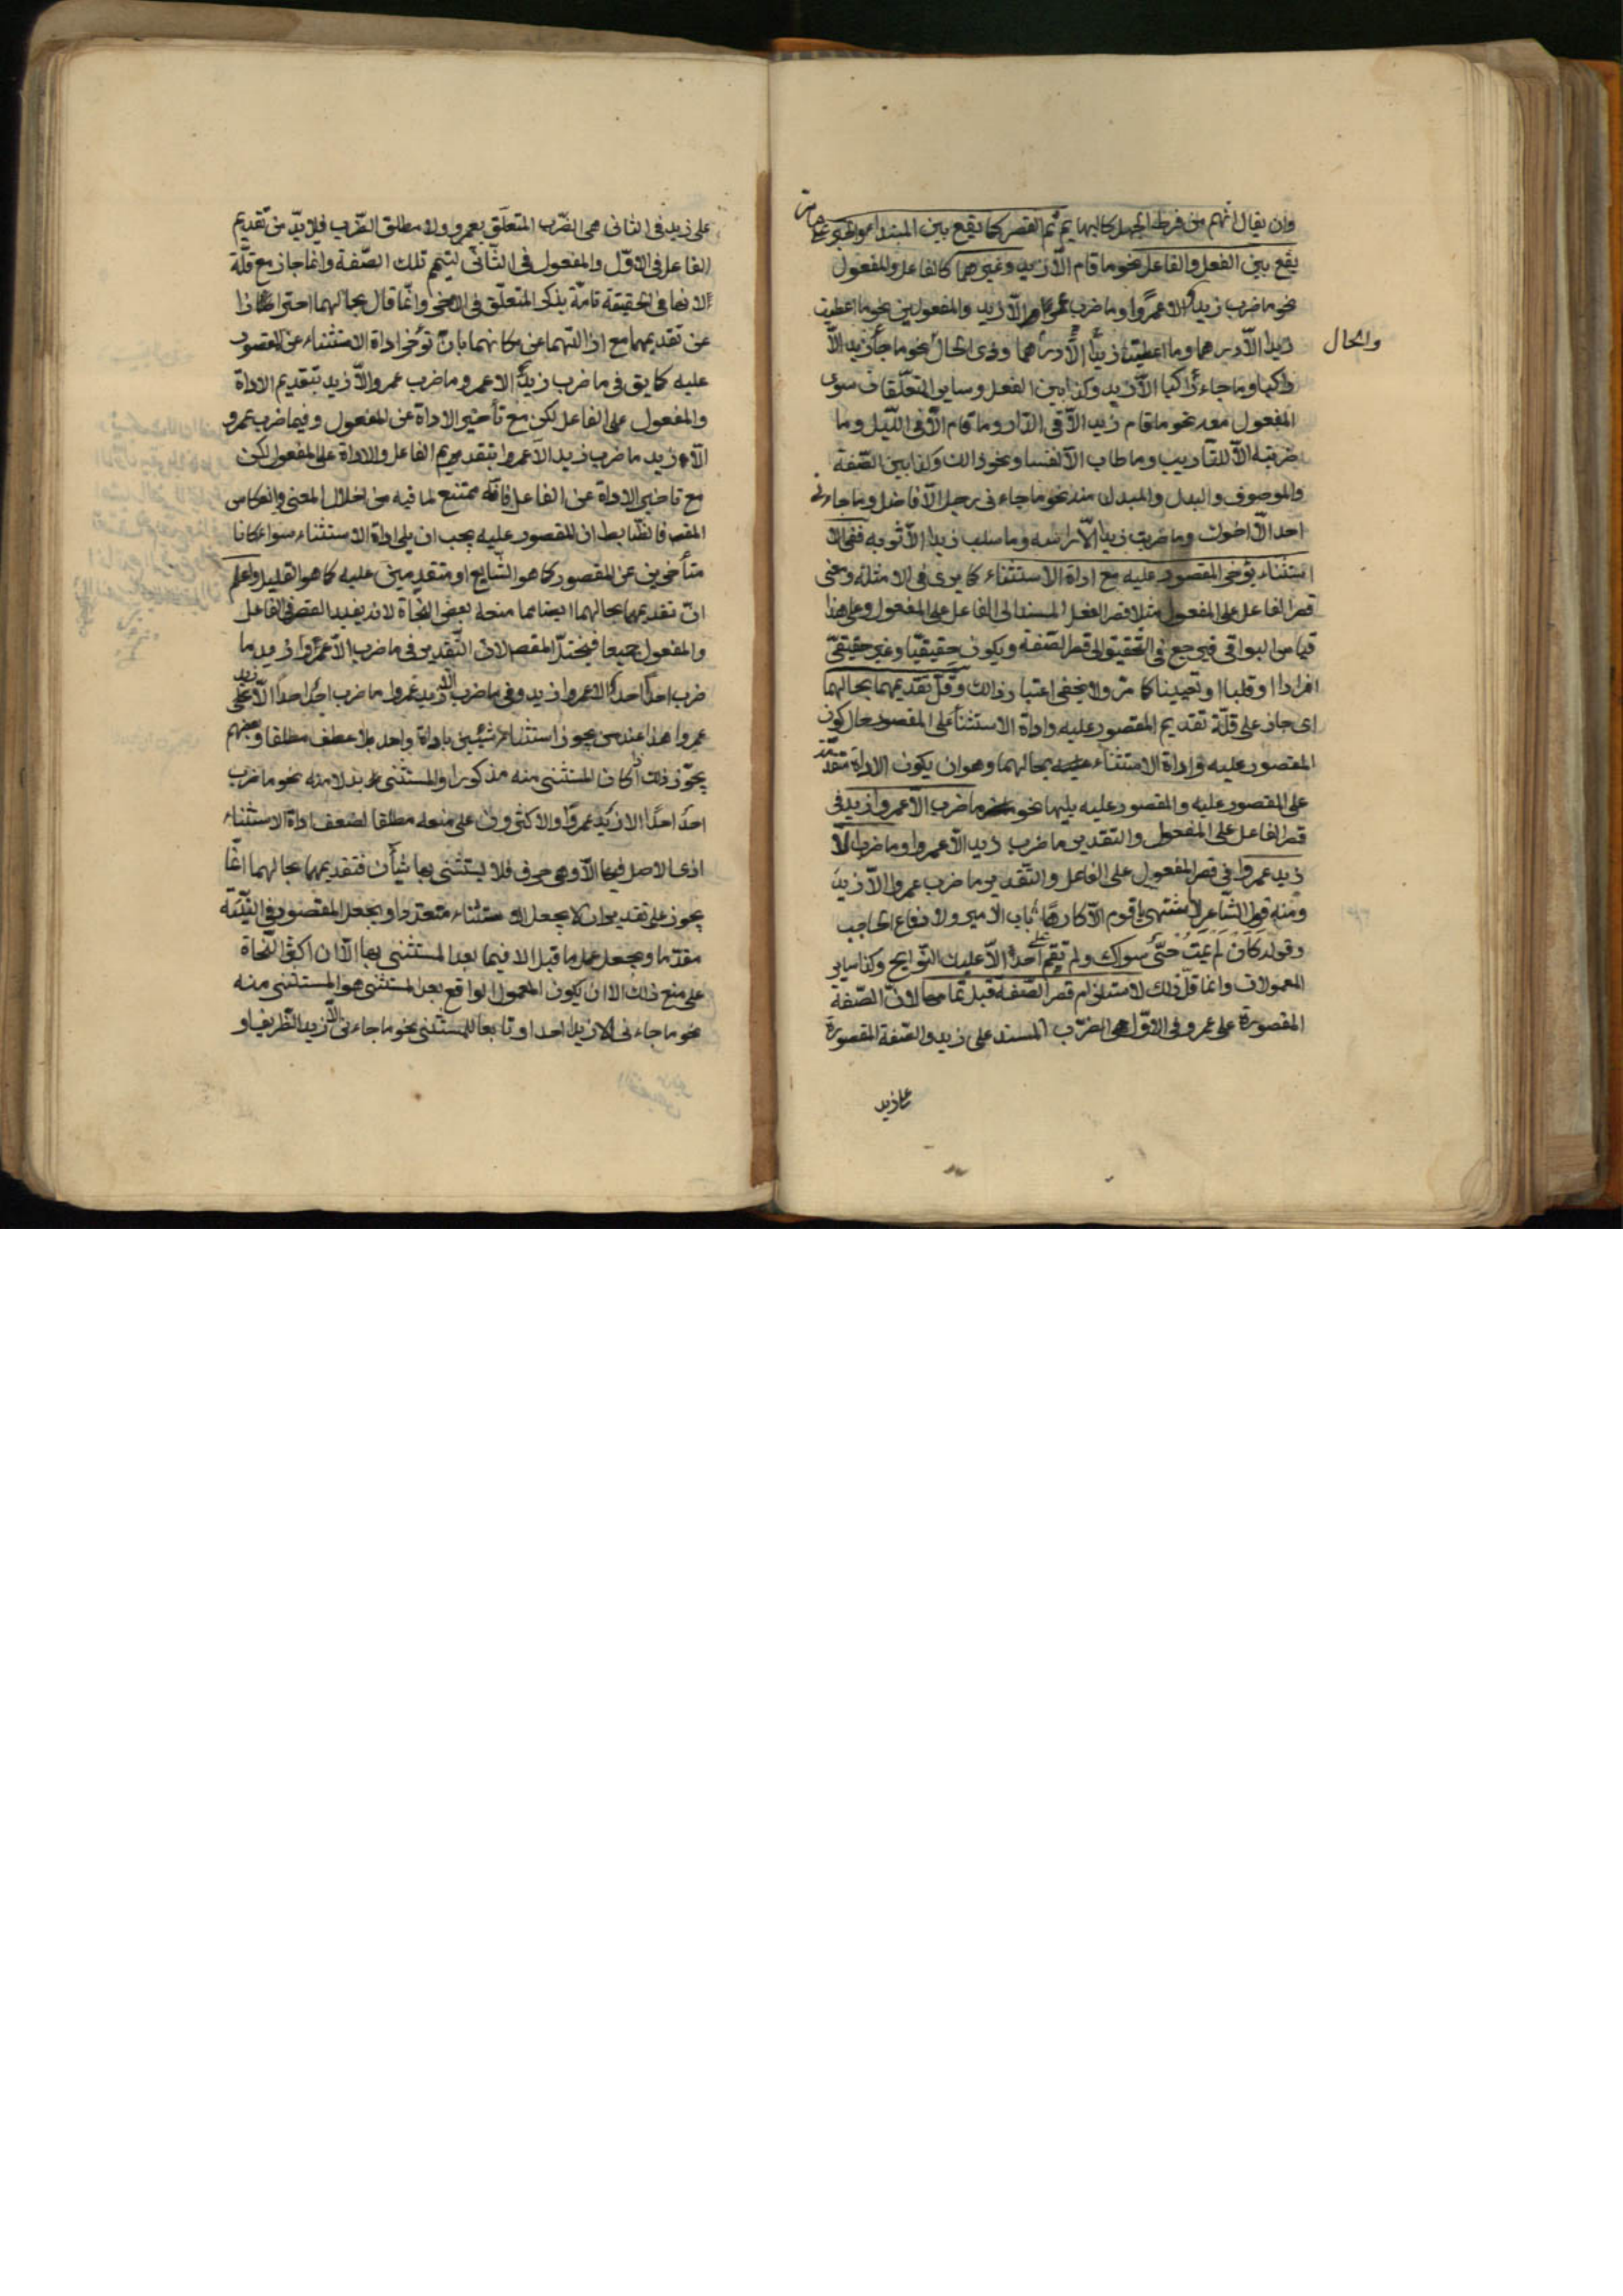 وان يقال انهم من فرط الجهل كالبهايم ثم القصر كما يقع بين المبتداء والخبر على ما مر
يقع بين الفعل والفاعل نحو ما قام الا زيد وغيرهما كالفاعل والمفعول
نحو ما ضرب زيد الا عمروا وما ضرب عمروا الا زيد والمفعولين نحو ما اعطيت
زيدا الا درهما وما اعطيت درهما الا زيدا وذى الحال نحو ما جاء زيد الا
والحال
راكبا وما جاء راكبا الا زيد وكذا بين الفعل وساير المتعلقات سوى
المفعول معه نحو ما قام زيد الا فى الدار وما قام الا فى الليل وما
ضربته الا للتاديب وما طاب الا نفسا ونحو ذالك وكذا بين الصفة
والموصوف والبدل والمبدل منه نحو ما جاءنى رجل الا فاضل وما جاءنى
احد الا اخوك وما ضربت زيدا الا راسه وما سلب زيد الا ثوبه ففى الا
ستثناء يؤخر المقصور عليه مع اداة الاستثناء كما يرى فى الامثلة ومعنى
قصر الفاعل على المفعول مثلا قصر الفعل المسند الى الفاعل على المفعول وعلى هذا
قياس البواقى فيرجع فى التحقيق الى قصر الصفة ويكون حقيقيا وغير حقيقى
افرادا او قلبا او تعيينا كما مر ولا يخفى اعتبار ذالك وقل تقديمهما بحالهما
اى جاز على قلة تقديم المقصور عليه واداة الاستثناء على المقصور حال كون
المقصور عليه واداة الاستثناء بحالهما وهو ان يكون الاداة متقدمة
على المقصور عليه والمقصور عليه يليها نحو ما ضرب الا عمروا زيد فى
قصر الفاعل على المفعول والتقدير ما ضرب زيد الا عمروا وما ضرب الا
زيد عمروا فى قصر المفعول على الفاعل والتقدير ما ضرب عمروا الا زيد
ومنه قول الشاعر لا اشتهى يا قوم الا كارها باب الامير ولا دفاع الحاجب
وقوله كان لم يمت حى سواك ولم تقم على احد الا عليك النوايح وكذا ساير
المعمولات وانما قل ذلك لاستلزام قصر الصفة قبل تمامها لان الصفة
المقصورة على عمرو فى الاول هى الضرب المسند على زيد والصفة المقصورة
على زيد
على زيد فى الثانى هى الضرب المتعلق بعمرو ولا مطلق الضرب فلا بد من تقديم
الفاعل فى الاول والمفعول فى الثانى ليتم تلك الصفة وانما جاز مع قلة
لانها فى الحقيقة تامة بذكر المتعلق فى الاخر وانما قال بحالهما احترازا
عن تقديمهما مع ازالتهما عن مكانهما بان تؤخر اداة الاستثناء عن المقصور
عليه كما يق فى ما ضرب زيد الا عمرو ما ضرب عمروا الا زيد بتقديم الاداة
والمفعول على الفاعل لكن مع تأخير الاداة عن المفعول وفيما ضرب عمرو
الا زيد ما ضرب زيد الا عمروا بتقديم الفاعل والاداة على المفعول لكن
مع تاخير الاداة عن الفاعل فانه ممتنع لما فيه من اختلال المعنى وانعكاس
المقصد فالضابط ان المقصور عليه يجب ان يلى اداة الاستثناء سواء كانا
متأخرين عن المقصور كما هو الشايع او متقدمين عليه كما هو القليل واعلم
ان تقديمهما بحالهما ايضا مما منعه بعض النحاة لانه يفيد القصر فى الفاعل
والمفعول جميعا فيختل المقصد لان التقدير فى ما ضرب الا عمروا زيد ما
ضرب احد احدا الا عمروا زيد وفى ما ضرب الا زيد عمروا ما ضرب احد احدا الا زيد
عمروا هذا عند من يجوز استثناء شيئين باداة واحد بلا عطف مطلقا وبعضهم
يجوز ذلك ان كان المستثنى منه مذكورا والمستثنى بدلا منه نحو ما ضرب
احد احدا الا زيد عمروا والاكثرون على منعه مطلقا لضعف اداة الاستثناء
اذى الاصل فيها الا وهى حرف فلا يستثنى بها شيأن فتقديمهما بحالهما انما
يجوز على تقدير ان لا يجعل الاستثناء متعددا ويجعل المقصور فى النية
مقدما ويجعل عمل ما قبل الا فيما بعد المستثنى بها الا ان اكثر النحاة
على منع ذلك الا ان يكون المعمول الواقع بعد المستثنى هو المستثنى منه
نحو ما جاءنى الا زيدا احد او تابعا للمستثنى نحو ما جاءنى الا زيد الظريف او